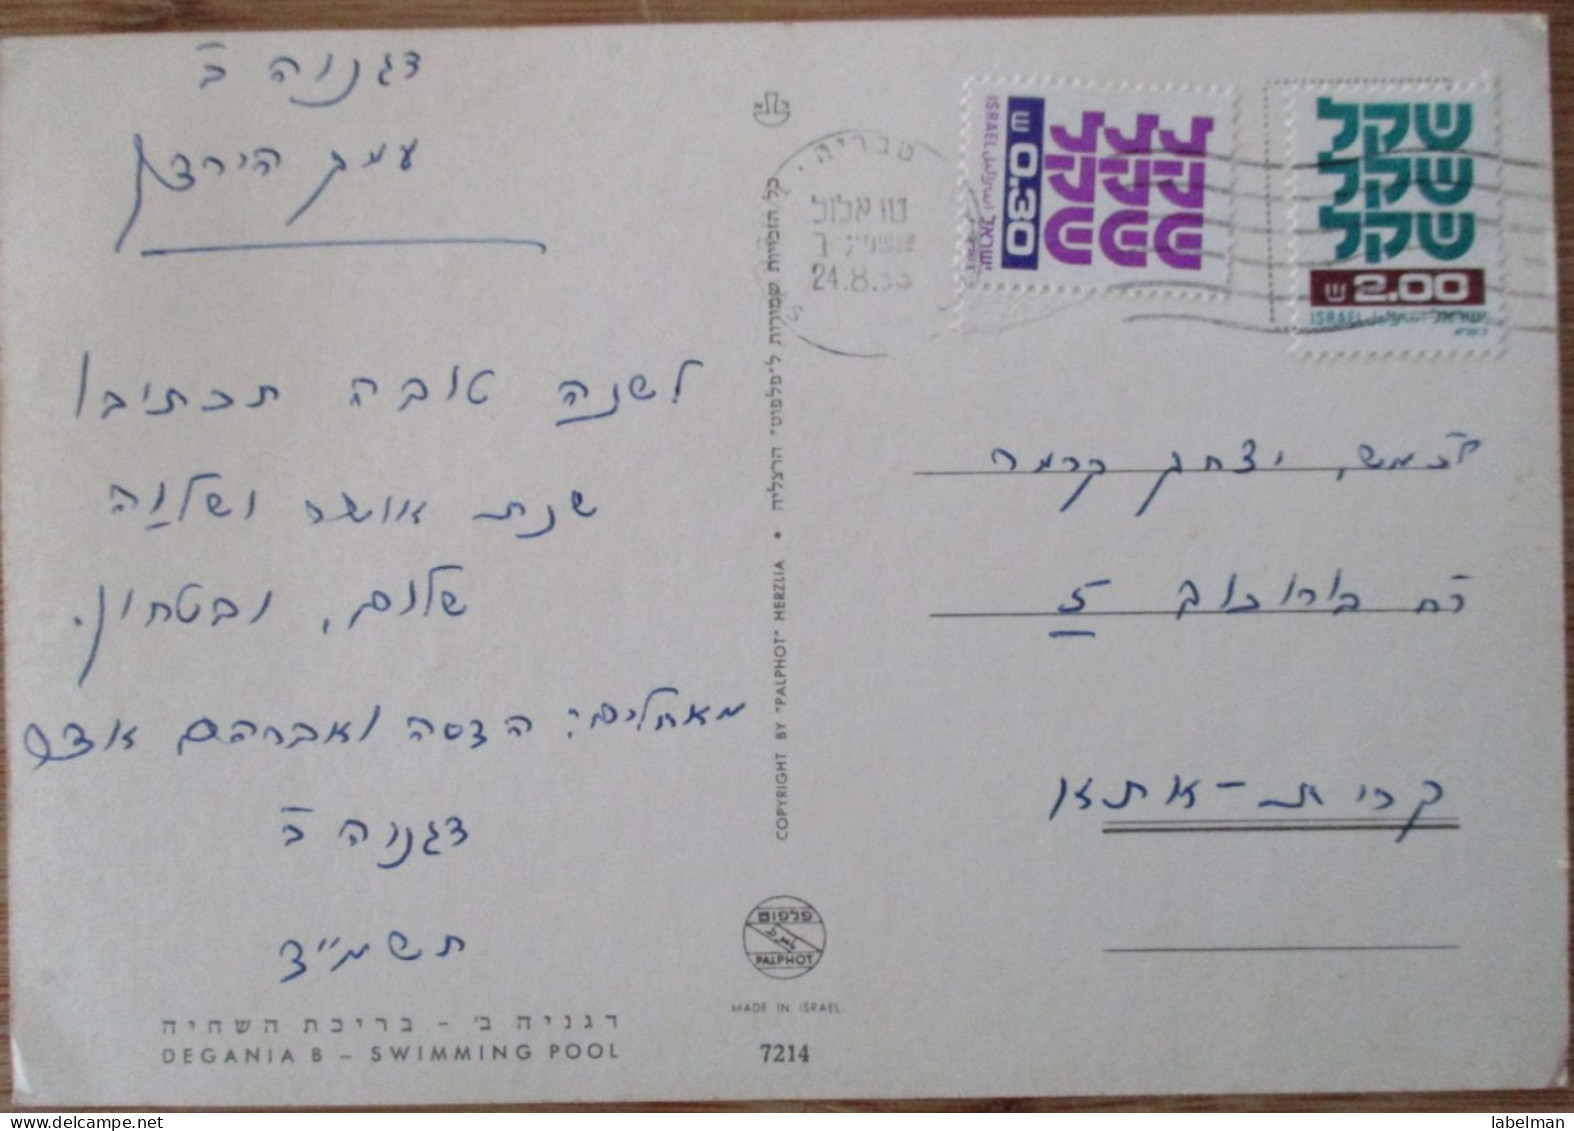 דגניה ב
עמק הירדן
לשנה טובה תכתיבו
שנת אושר ושלוה
שלום, ובטחון.
מאחלים: הדסה ואברהם
דגניה ב
תשמ"ד
דגניה ב' - בריכת השחיה
DEGANIA B – SWIMMING POOL
כל הזכויות שמורות ל"פלפוט" הרצליה • COPYRIGHT BY "PALPHOT" HERZLIA
פלפוט
PALPHOT
MADE IN ISRAEL
7214
טבריה
טז אלול
24.8.83
שקל
שקל
שקל
0.30
ISRAEL اسرائيل ישראל
שקל
שקל
שקל
ש 2.00
ISRAEL اسرائيل ישראל
למש, יצחק קרמר
רח בורוכוב 5
קרית-אתא
labelman